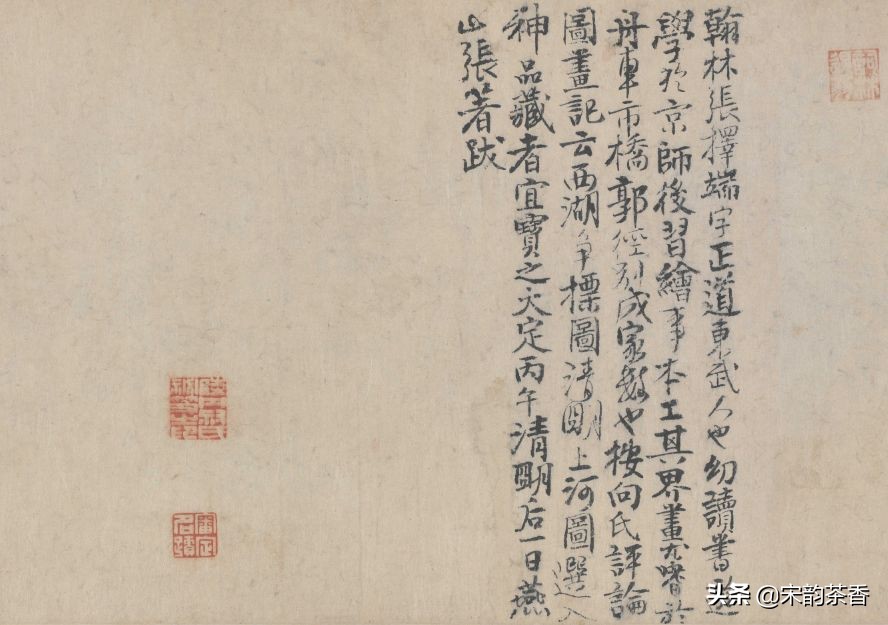 翰林張擇端字正道東武人也幼讀書遊
學於京師後習繪事本工其界畫尤嗜於
舟車市橋郭徑別成家數也按向氏評論
圖畫記云西湖爭標圖清明上河圖選入
神品藏者宜寶之大定丙午清明后一日燕
山張著跋
头条 @宋韵茶香